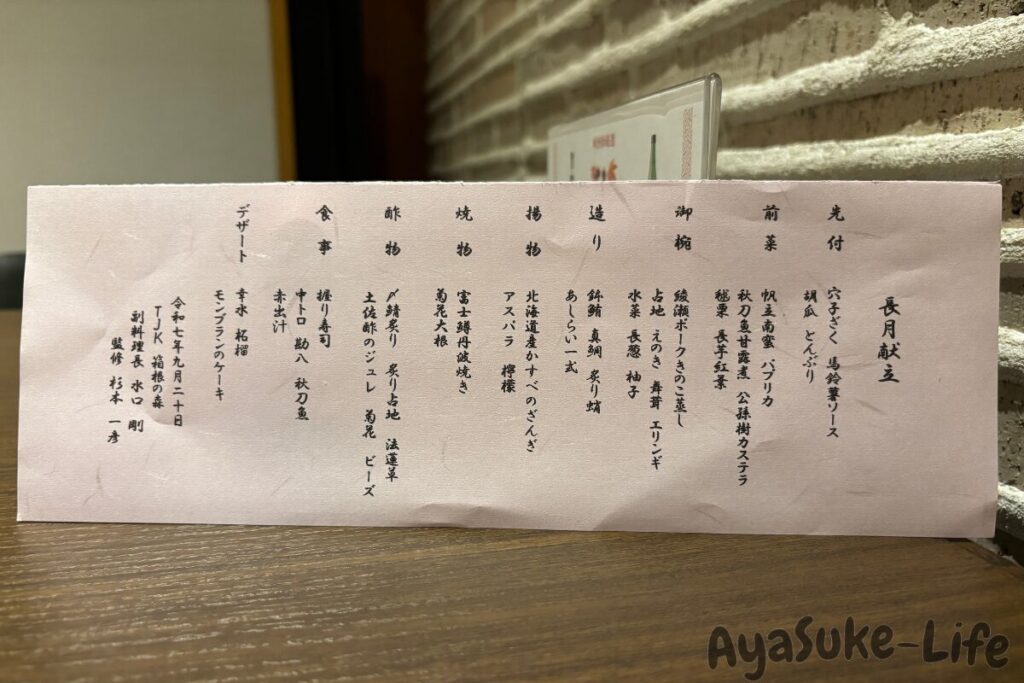 長月献立
先付
穴子ざく 馬鈴薯ソース
胡瓜 とんぶり
前菜
帆立南蛮 パプリカ
秋刀魚甘露煮 公孫樹カステラ
毬栗 長芋紅葉
御椀
綾瀬ポークきのこ蒸し
占地 えのき 舞茸 エリンギ
水菜 長葱 柚子
造り
鉾鮪 真鯛 炙り蛸
あしらい一式
揚物
北海道産かすべのざんぎ
アスパラ 檸檬
焼物
富士鱒丹波焼き
菊花大根
酢物
〆鯖炙り 炙り占地 法蓮草
土佐酢のジュレ 菊花 ビーズ
食事
握り寿司
中トロ 勘八 秋刀魚
赤出汁
デザート
幸水 柘榴
モンブランのケーキ
令和七年九月二十日
TJK 箱根の森
副料理長 水口 剛
監修 杉本 一彦
AyaSuke-Life